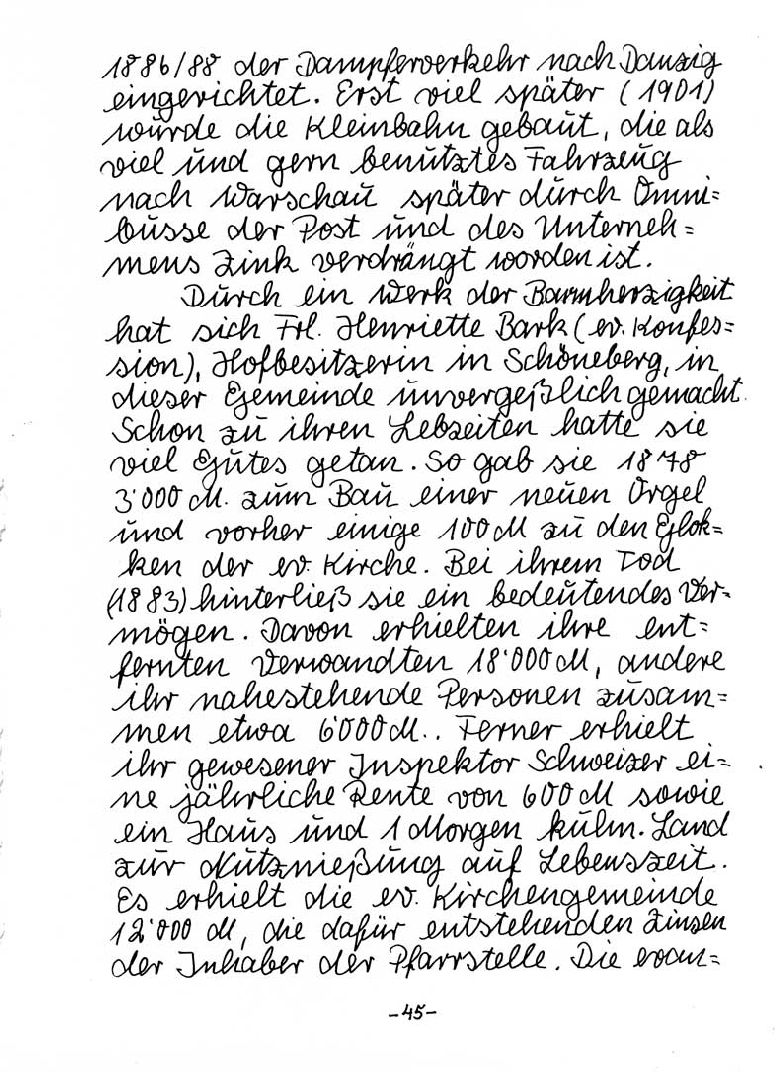 1886/88 der Dampferverkehr nach Danzig
eingerichtet. Erst viel später (1901)
wurde die Kleinbahn gebaut, die als
viel und gern benutztes Fahrzeug
nach Warschau später durch Omni=
busse der Post und des Unterneh=
mens Zink verdrängt worden ist.
Durch ein Werk der Barmherzigkeit
hat sich Frl. Henriette Bark (ev. Konfes=
sion), Hofbesitzerin in Schöneberg, in
dieser Gemeinde unvergeßlich gemacht.
Schon zu ihren Lebzeiten hatte sie
viel Gutes getan. So gab sie 1878
3'000 M. zum Bau einer neuen Orgel
und vorher einige 100 M zu den Glok=
ken der ev. Kirche. Bei ihrem Tod
(1883) hinterließ sie ein bedeutendes Ver=
mögen. Davon erhielten ihre ent=
fernten Verwandten 18'000 M, andere
ihr nahestehende Personen zusam=
men etwa 6'000 M.. Ferner erhielt
ihr gewesener Inspektor Schweizer ei=
ne jährliche Rente von 600 M sowie
ein Haus und 1 Morgen kulm. Land
zur Nutznießung auf Lebenszeit.
Es erhielt die ev. Kirchengemeinde
12'000 M, die dafür entstehenden Zinsen
der Inhaber der Pfarrstelle. Die evan=
-45-